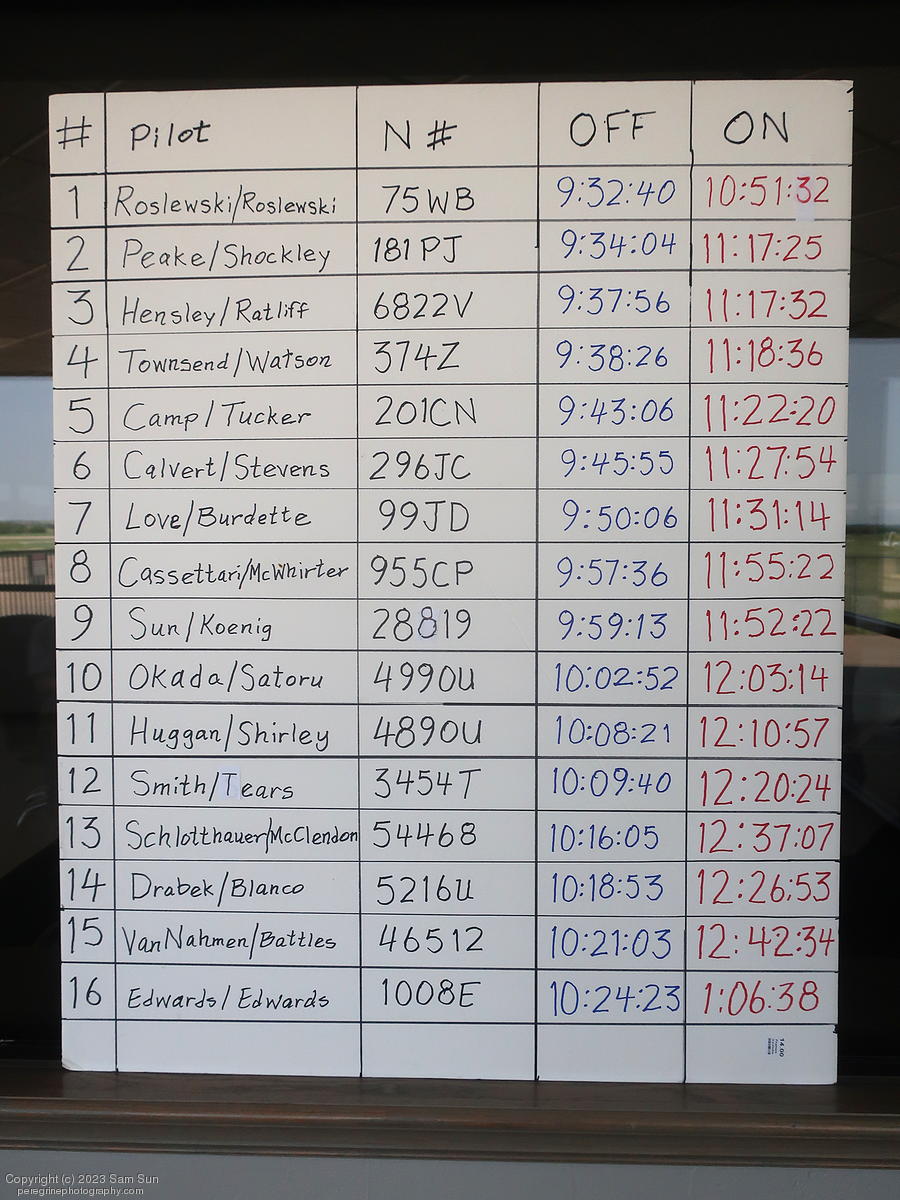 # Pilot N # OFF ON
1 Roslewski/Roslewski 75WB 9:32:40 10:51:32
2 Peake/Shockley 181PJ 9:34:04 11:17:25
3 Hensley/Ratliff 6822V 9:37:56 11:17:32
4 Townsend/Watson 374Z 9:38:26 11:18:36
5 Camp/Tucker 201CN 9:43:06 11:22:20
6 Calvert/Stevens 296JC 9:45:55 11:27:54
7 Love/Burdette 99JD 9:50:06 11:31:14
8 Cassettari/McWhirter 955CP 9:57:36 11:55:22
9 Sun/Koenig 28819 9:59:13 11:52:22
10 Okada/Satoru 4990U 10:02:52 12:03:14
11 Huggan/Shirley 4890U 10:08:21 12:10:57
12 Smith/Tears 3454T 10:09:40 12:20:24
13 Schlotthauer/McClendon 54468 10:16:05 12:37:07
14 Drabek/Blanco 5216U 10:18:53 12:26:53
15 VanNahmen/Battles 46512 10:21:03 12:42:34
16 Edwards/Edwards 1008E 10:24:23 1:06:38
Copyright (c) 2023 Sam Sun
peregrinephotography.com